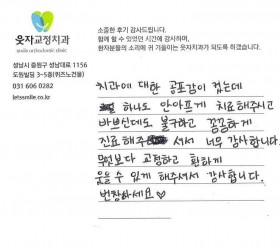 웃자교정치과
smile orthodontic clinic
성남시 중원구 성남대로 1156
도원빌딩 3~5층(퀴즈노건물)
031 606 0282
letssmile.co.kr
소중한 후기 감사드립니다.
함께 할 수 있었던 시간에 감사하며,
환자분들의 소리에 귀 기울이는 웃자치과가 되도록 하겠습니다.
치과에 대한 공포감이 컸는데
하나도 안아프게 치료해주시고
바쁘신데도 불구하고 꼼꼼하게
진료해주셔서 너무 감사합니다.
무엇보다 교정하고 환하게
웃을 수 있게 해주셔서 감사합니다.
번창하세요♡